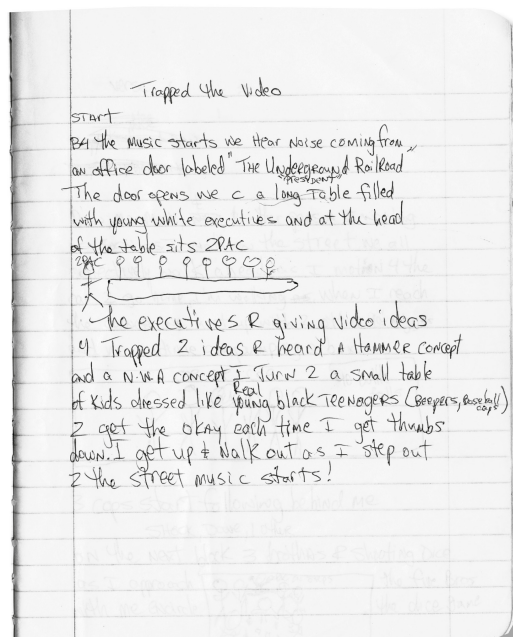 Trapped the Video
START
B4 the Music starts we Hear Noise coming from
an office door labeled "THE Underground Railroad"
"PRESIDENT"
The door opens we c a long Table filled
with young white executives and at the head
of the table sits 2PAC
2PAC
the executives R giving video ideas
4 Trapped 2 ideas R heard A HAMMER concept
and a N.W.A concept I Turn 2 a small table
Real
of Kids dressed like young black Teenogers (Beepers, Baseball
caps)
2 get the okay each time I get thumbs
down. I get up & Walk out as I step out
2 the street music starts!